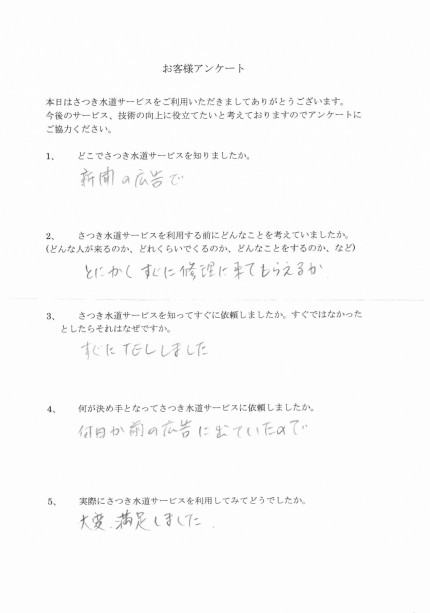 お客様アンケート
本日はさつき水道サービスをご利用いただきましてありがとうございます。
今後のサービス、技術の向上に役立てたいと考えておりますのでアンケートに
ご協力ください。
1、 どこでさつき水道サービスを知りましたか。
新聞の広告で
2、 さつき水道サービスを利用する前にどんなことを考えていましたか。
(どんな人が来るのか、どれくらいでくるのか、どんなことをするのか、など)
とにかくすぐに修理に来てもらえるか
3、 さつき水道サービスを知ってすぐに依頼しましたか。すぐではなかった
としたらそれはなぜですか。
すぐにTELしました
4、 何が決め手となってさつき水道サービスに依頼しましたか。
何日か前の広告に出ていたので
5、 実際にさつき水道サービスを利用してみてどうでしたか。
大変、満足しました。